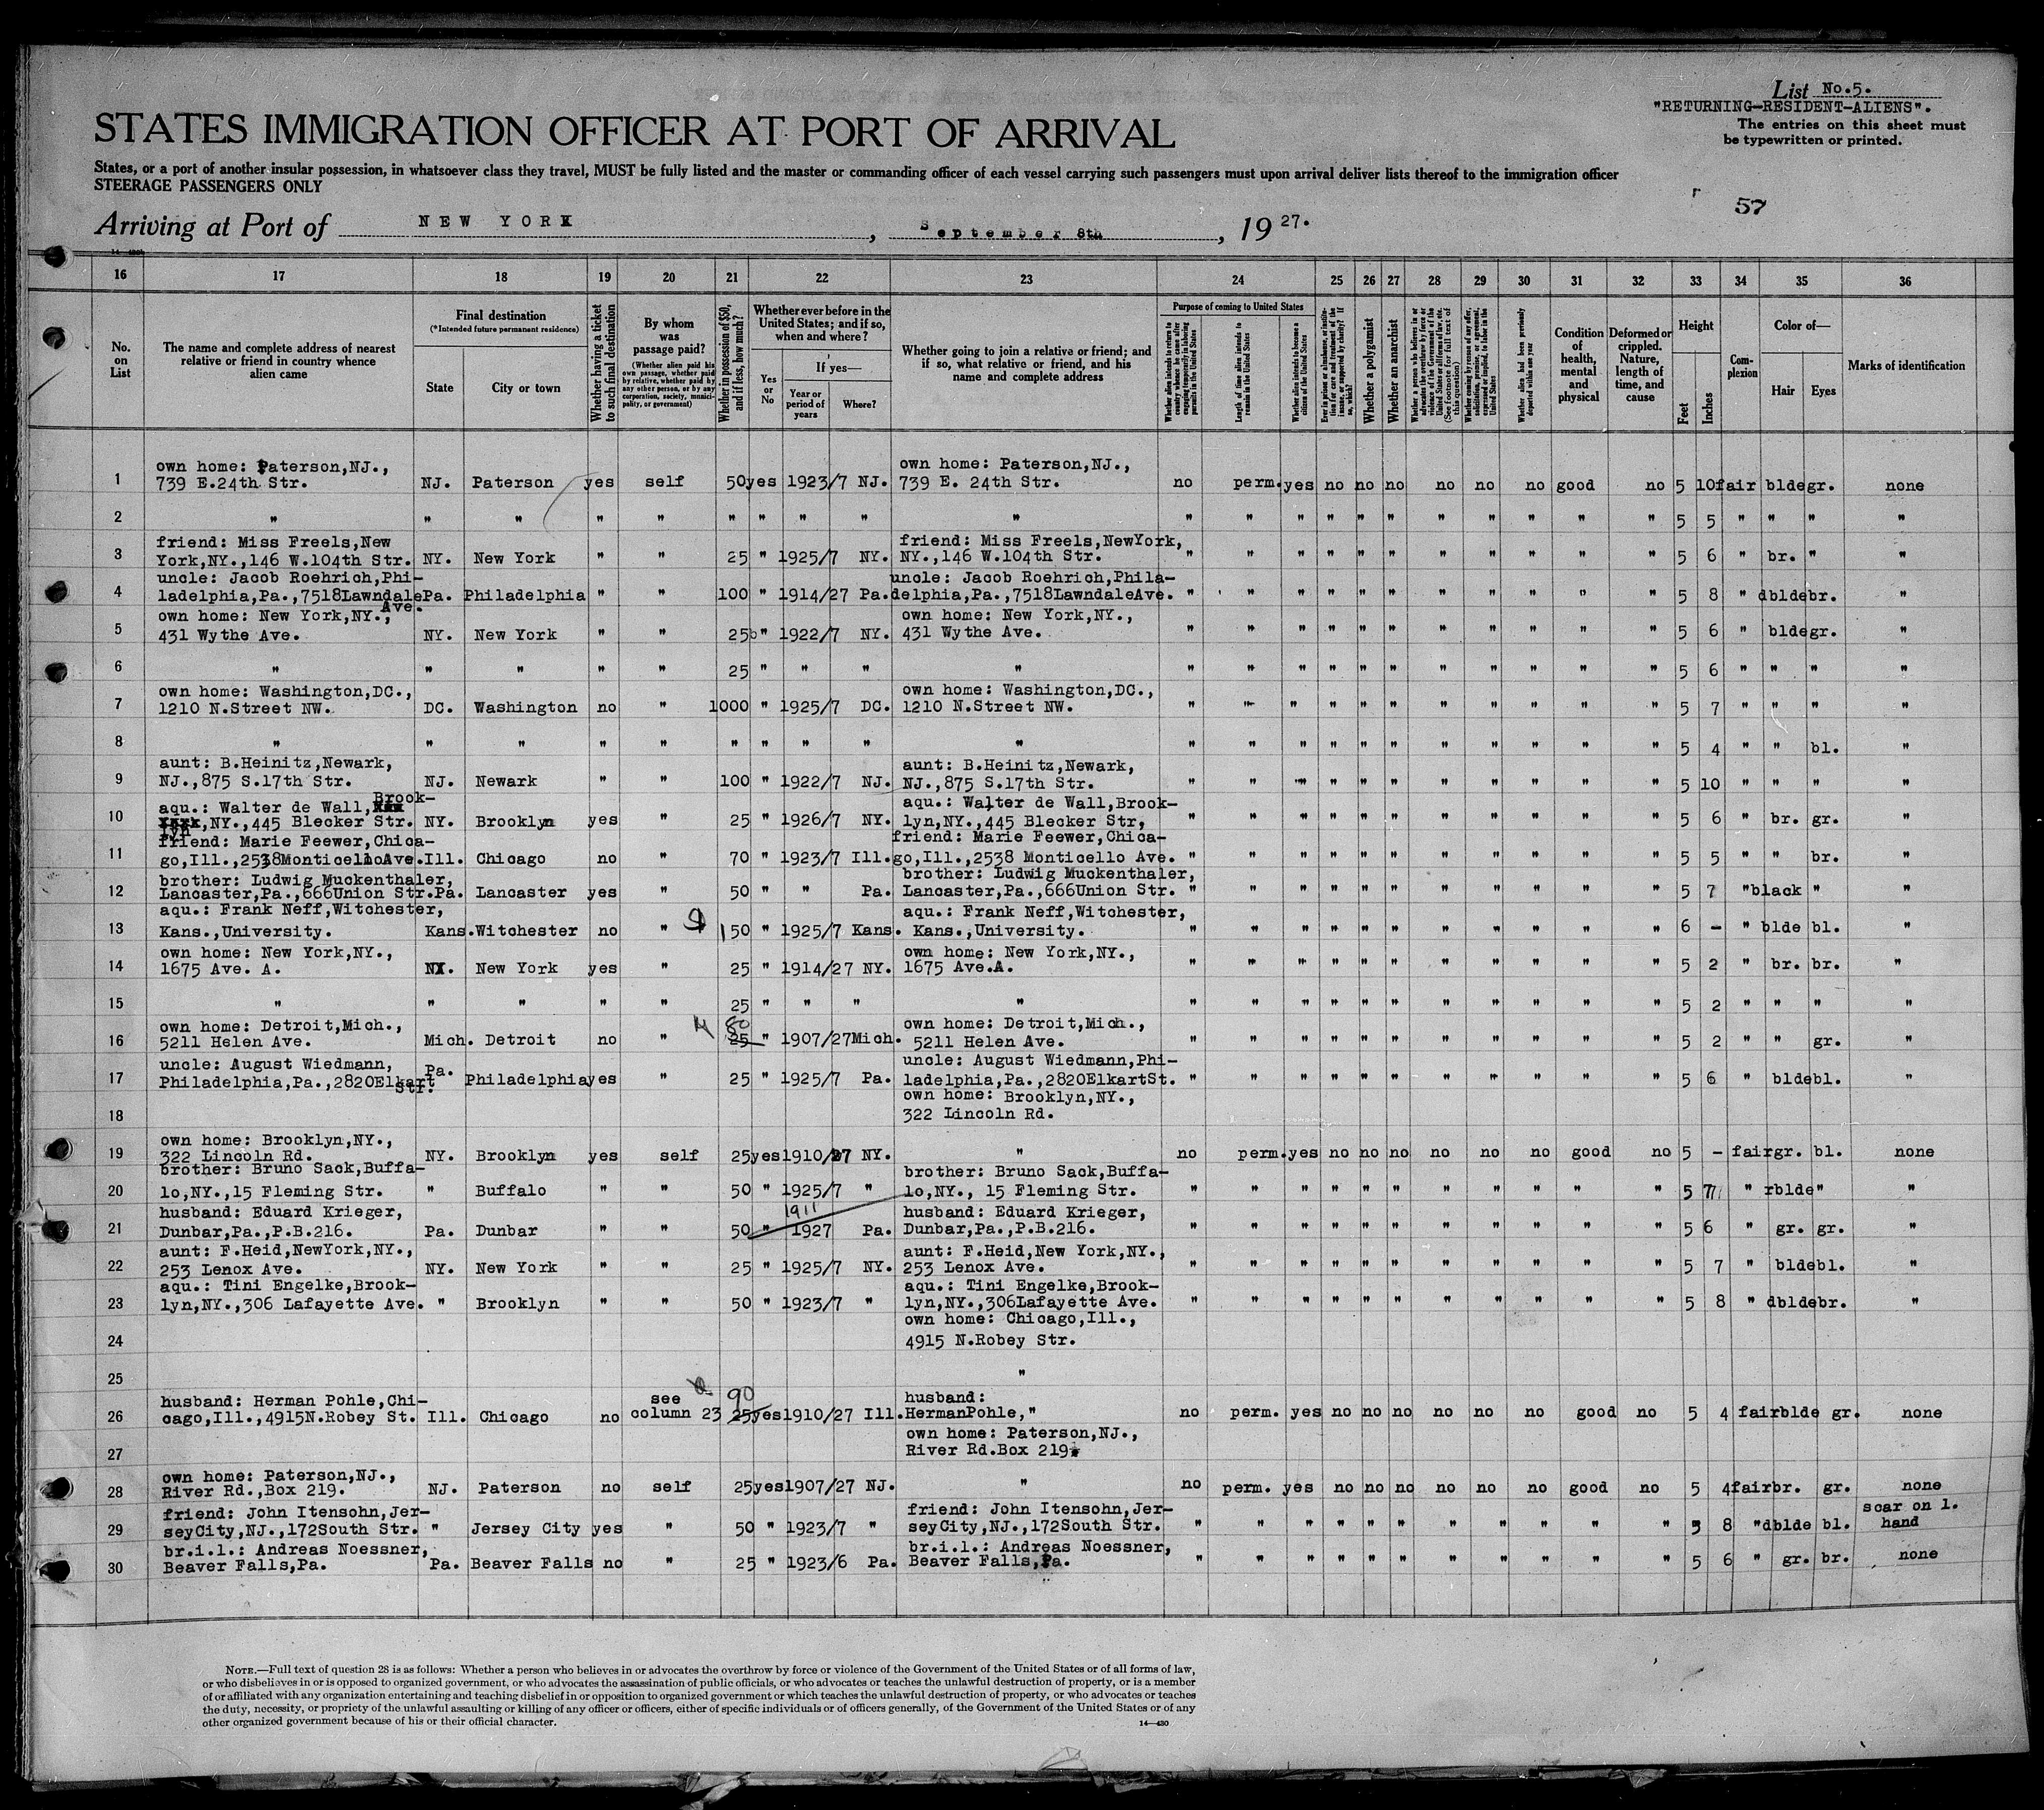 List No.5.
"RETURNING-RESIDENT-ALIENS".
The entries on this sheet must
be typewritten or printed.
STATES IMMIGRATION OFFICER AT PORT OF ARRIVAL
States, or a port of another insular possession, in whatsoever class they travel, MUST be fully listed and the master or commanding officer of each vessel carrying such passengers must upon arrival deliver lists thereof to the immigration officer
STEERAGE PASSENGERS ONLY
57
Arriving at Port of NEW YORK, September 8th, 1927.
16 17 18 19 20 21 22 23 24 25 26 27 28 29 30 31 32 33 34 35 36
No. on List
The name and complete address of nearest relative or friend in country whence alien came
Final destination
(*Intended future permanent residence)
State
City or town
Whether having a ticket to such final destination
By whom was passage paid?
(Whether alien paid his own passage, whether paid by relative, whether paid by any other person, or by any corporation, society, municipality, or government)
Whether in possession of $50, and if less, how much?
Whether ever before in the United States; and if so, when and where?
Yes or No
If yes—
Year or period of years
Where?
Whether going to join a relative or friend; and if so, what relative or friend, and his name and complete address
Purpose of coming to United States
Whether alien intends to return to country whence he came after engaging temporarily in laboring pursuits in the United States
Length of time alien intends to remain in the United States
Whether alien intends to become a citizen of the United States
Ever in prison or almshouse, or institution for care and treatment of the insane, or supported by charity? If so, which?
Whether a polygamist
Whether an anarchist
Whether a person who believes in or advocates the overthrow by force or violence of the Government of the United States or all forms of law, etc. (See footnote for full text of this question)
Whether coming by reason of any offer, solicitation, promise, or agreement, expressed or implied, to labor in the United States
Whether alien had been previously deported within one year
Condition of health, mental and physical
Deformed or crippled. Nature, length of time, and cause
Height
Feet
Inches
Complexion
Color of—
Hair
Eyes
Marks of identification
1 own home: Paterson,NJ., 739 E.24th Str. NJ. Paterson yes self 50 yes 1923/7 NJ. own home: Paterson,NJ., 739 E. 24th Str. no perm. yes no no no no no no good no 5 10 fair blde gr. none
2 " " " " " " " " " " " " " " " " " " " " " 5 5 " " " "
3 friend: Miss Freels,New York,NY.,146 W.104th Str. NY. New York " " 25 " 1925/7 NY. friend: Miss Freels,NewYork, NY.,146 W.104th Str. " " " " " " " " " " " 5 6 " br. " "
4 uncle: Jacob Roehrich,Philadelphia,Pa.,7518LawndaleAve. Pa. Philadelphia " " 100 " 1914/27 Pa. uncle: Jacob Roehrich,Philadelphia,Pa.,7518LawndaleAve. " " " " " " " " " " " 5 8 " dblde br. "
5 own home: New York,NY., 431 Wythe Ave. NY. New York " " 25 " 1922/7 NY. own home: New York,NY., 431 Wythe Ave. " " " " " " " " " " " 5 6 " blde gr. "
6 " " " " " 25 " " " " " " " " " " " " " " " 5 6 " " " "
7 own home: Washington,DC., 1210 N.Street NW. DC. Washington no " 1000 " 1925/7 DC. own home: Washington,DC., 1210 N.Street NW. " " " " " " " " " " " 5 7 " " " "
8 " " " " " " " " " " " " " " " " " " " " " 5 4 " " bl. "
9 aunt: B.Heinitz,Newark, NJ.,875 S.17th Str. NJ. Newark " " 100 " 1922/7 NJ. aunt: B.Heinitz,Newark, NJ.,875 S.17th Str. " " " " " " " " " " " 5 10 " " " "
10 aqu.: Walter de Wall,Brooklyn,NY.,445 Blecker Str. NY. Brooklyn yes " 25 " 1926/7 NY. aqu.: Walter de Wall,Brooklyn,NY.,445 Blecker Str, " " " " " " " " " " " 5 6 " br. gr. "
11 friend: Marie Feewer,Chicago,Ill.,2538MonticelloAve. Ill. Chicago no " 70 " 1923/7 Ill. friend: Marie Feewer,Chicago,Ill.,2538 Monticello Ave. " " " " " " " " " " " 5 5 " " br. "
12 brother: Ludwig Muckenthaler, Lancaster,Pa.,666Union Str. Pa. Lancaster yes " 50 " " Pa. brother: Ludwig Muckenthaler, Lancaster,Pa.,666Union Str. " " " " " " " " " " " 5 7 " black " "
13 aqu.: Frank Neff,Witchester, Kans.,University. Kans. Witchester no " 150 " 1925/7 Kans. aqu.: Frank Neff,Witchester, Kans.,University. " " " " " " " " " " " 6 - " blde bl. "
14 own home: New York,NY., 1675 Ave. A. NY. New York yes " 25 " 1914/27 NY. own home: New York,NY., 1675 Ave.A. " " " " " " " " " " " 5 2 " br. br. "
15 " " " " " 25 " " " " " " " " " " " " " " " 5 2 " " " "
16 own home: Detroit,Mich., 5211 Helen Ave. Mich. Detroit no " 80 25 " 1907/27 Mich. own home: Detroit,Mich., 5211 Helen Ave. " " " " " " " " " " " 5 2 " " gr. "
17 uncle: August Wiedmann, Philadelphia,Pa.,2820Elkart Str. Pa. Philadelphia yes " 25 " 1925/7 Pa. uncle: August Wiedmann,Philadelphia,Pa.,2820ElkartSt. " " " " " " " " " " " 5 6 " blde bl. "
18 own home: Brooklyn,NY., 322 Lincoln Rd.
19 own home: Brooklyn,NY., 322 Lincoln Rd. NY. Brooklyn yes self 25 yes 1910/27 NY. " no perm. yes no no no no no no good no 5 - fair gr. bl. none
20 brother: Bruno Sack,Buffalo,NY.,15 Fleming Str. " Buffalo " " 50 " 1925/7 " brother: Bruno Sack,Buffalo,NY., 15 Fleming Str. " " " " " " " " " " " 5 7 " rblde " "
21 husband: Eduard Krieger, Dunbar,Pa.,P.B.216. Pa. Dunbar " " 50 " 1911 1927 Pa. husband: Eduard Krieger, Dunbar,Pa.,P.B.216. " " " " " " " " " " " 5 6 " gr. gr. "
22 aunt: F.Heid,NewYork,NY., 253 Lenox Ave. NY. New York " " 25 " 1925/7 NY. aunt: F.Heid,New York,NY., 253 Lenox Ave. " " " " " " " " " " " 5 7 " blde bl. "
23 aqu.: Tini Engelke,Brooklyn,NY.,306 Lafayette Ave. " Brooklyn " " 50 " 1923/7 " aqu.: Tini Engelke,Brooklyn,NY.,306Lafayette Ave. " " " " " " " " " " " 5 8 " dblde br. "
24 own home: Chicago,Ill., 4915 N.Robey Str.
25 "
26 husband: Herman Pohle,Chicago,Ill.,4915N.Robey St. Ill. Chicago no see column 23 90 25 yes 1910/27 Ill. husband: HermanPohle," no perm. yes no no no no no no good no 5 4 fair blde gr. none
27 own home: Paterson,NJ., River Rd.Box 219.
28 own home: Paterson,NJ., River Rd.,Box 219. NJ. Paterson no self 25 yes 1907/27 NJ. " no perm. yes no no no no no no good no 5 4 fair br. gr. none
29 friend: John Itensohn,JerseyCity,NJ.,172South Str. " Jersey City yes " 50 " 1923/7 " friend: John Itensohn,JerseyCity,NJ.,172South Str. " " " " " " " " " " " 5 8 " dblde bl. scar on l. hand
30 br.i.l.: Andreas Noessner, Beaver Falls,Pa. Pa. Beaver Falls no " 25 " 1923/6 Pa. br.i.l.: Andreas Noessner, Beaver Falls,Pa. " " " " " " " " " " " 5 6 " gr. br. none
NOTE.—Full text of question 28 is as follows: Whether a person who believes in or advocates the overthrow by force or violence of the Government of the United States or of all forms of law,
or who disbelieves in or is opposed to organized government, or who advocates the assassination of public officials, or who advocates or teaches the unlawful destruction of property, or is a member
of or affiliated with any organization entertaining and teaching disbelief in or opposition to organized government or which teaches the unlawful destruction of property, or who advocates or teaches
the duty, necessity, or propriety of the unlawful assaulting or killing of any officer or officers, either of specific individuals or of officers generally, of the Government of the United States or of any
other organized government because of his or their official character.
14—430